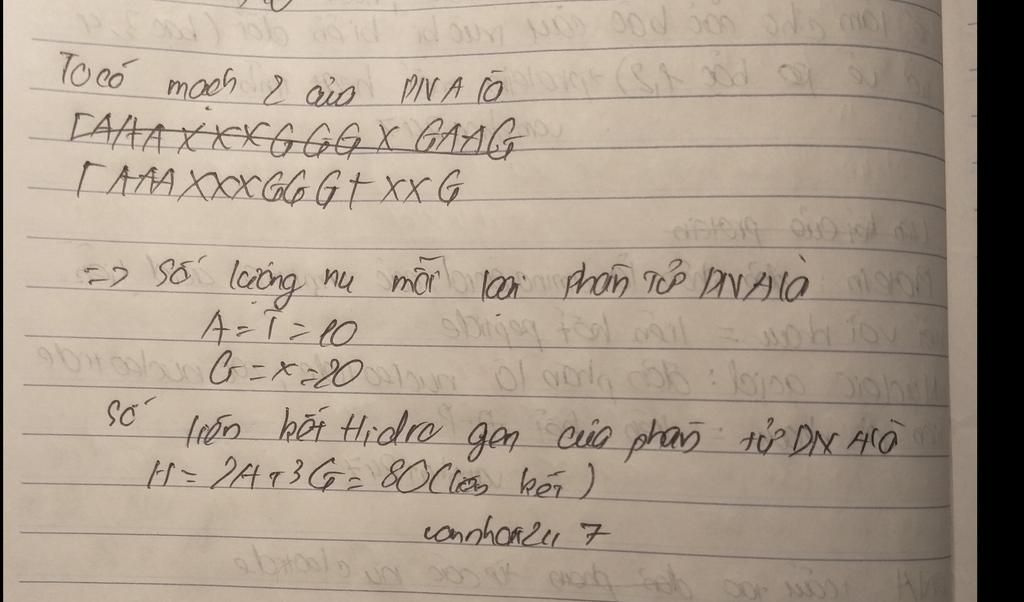 Ta có mạch 2 của DNA là
TAAAXXXGGGXGAAG
TAAAXXXGGGTXXG
=> số lượng nu mỗi loại phân tử DNA là
A=T=10
G=X=20
số liên kết Hidro gen của phân tử DNA là
H=2A+3G=80(liên kết)